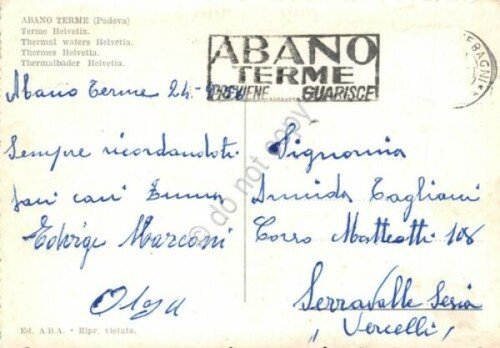 ABANO TERME (Padova)
Terme Helvetia.
Thermal waters Helvetia.
Thermes Helvetia.
Thermalbäder Helvetia.
ABANO
TERME
PREVIENE.........GUARISCE
Abano Terme 24-
Sempre ricordandoti
cari
Edvige Marconi
Olga
Signorina
Tagliani
Corso Matteotti 108
Serravalle Sesia
(Vercelli)
Ed. A.B.A. - Ripr. vietata.
© do not copy